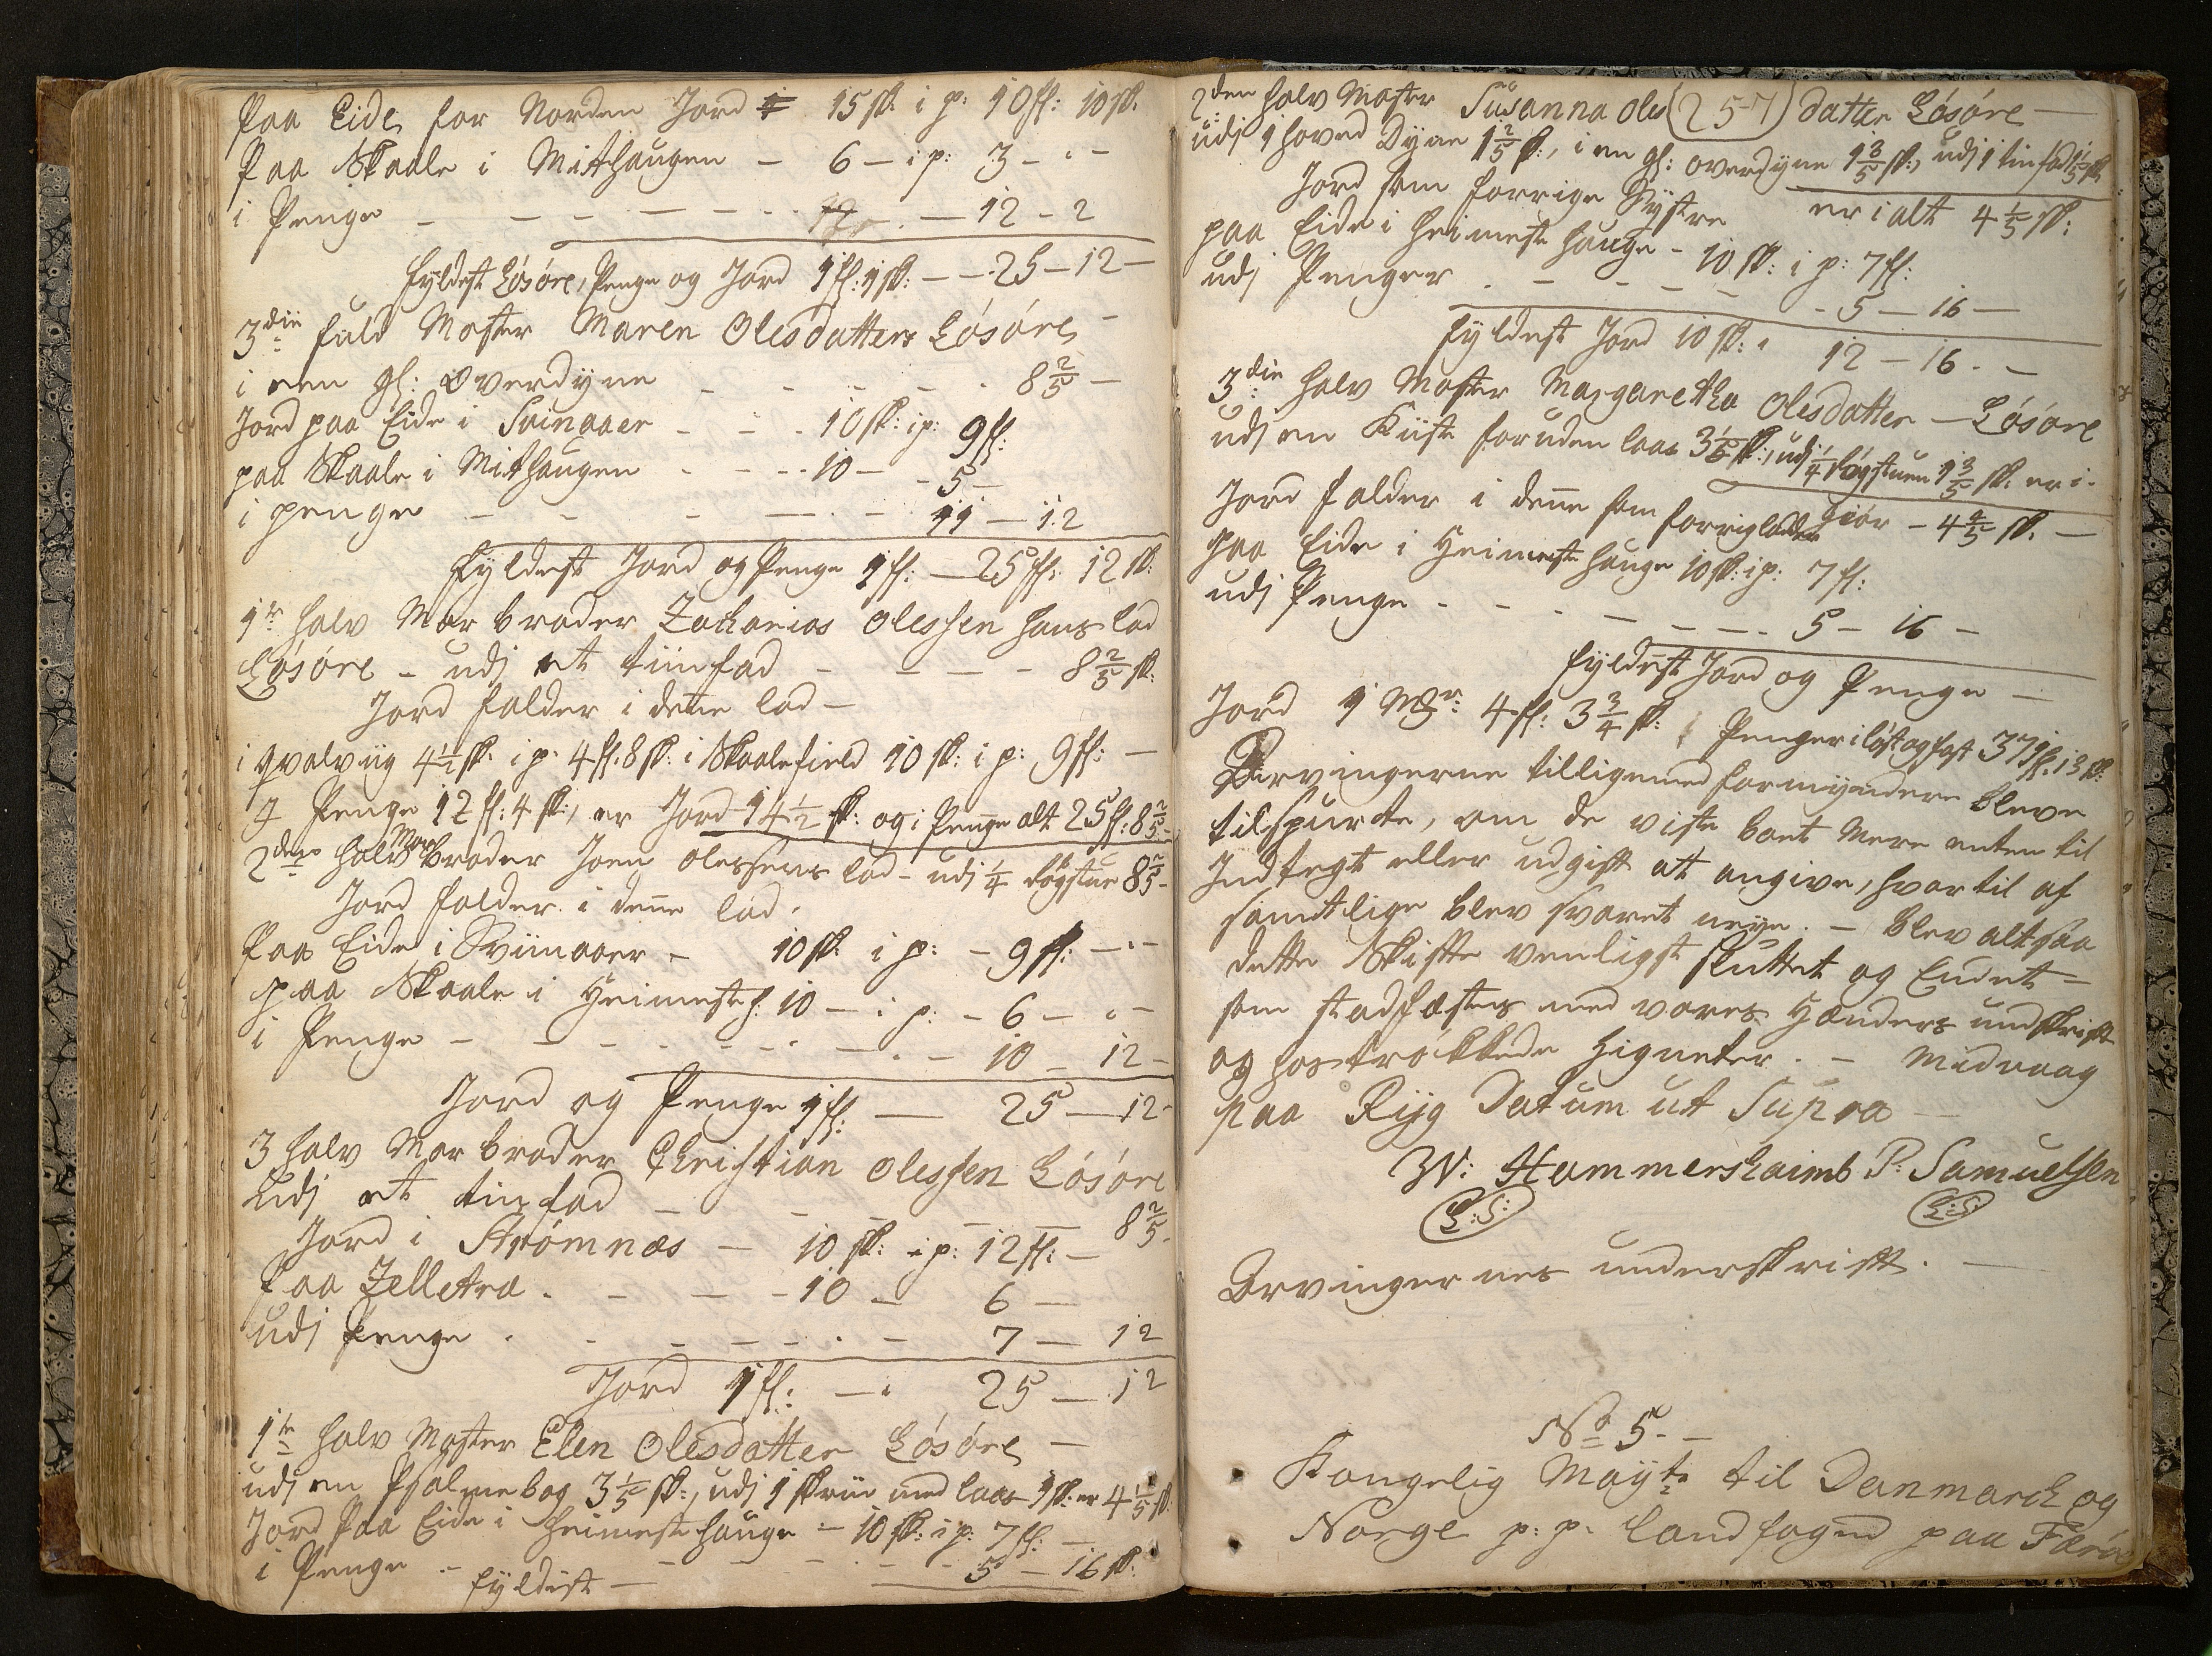 Paa Eide for Norden Jord 15 sk: i p: 10 fl: 10 sk.
Paa Skaale i Mithaugen - 6 - i p: 3 - " -
i Penge - - - - - - 12 - 2
fyldest Løsøre, Penge og Jord 1 fl: 1 sk: - - 25 - 12 -
3die fuld Moster Maren Olesdatters Løsøre -
i een gl: Overdyne - - - - - 8 2/5 -
Jord paa Eide i Svinaaer - - - 10 sk: i p: 9 fl:
paa Skaale i Mithaugen - - - 10 - - 5 -
i penge - - - - - 11 - 12
fyldest Jord og Penge 1 fl: - 25 fl: 12 sk:
1te halv Morbroder Zacharias Olessen hans lod
Løsøre - udj et tiinfad - - - - 8 2/5 sk:
Jord falder i dene lod -
i qvalviig 4 1/2 sk. i p. 4 fl. 8 sk: i Skaalefield 10 sk: i p: 9 fl: -
J Penge 12 fl: 4 sk:, er Jord 14 1/2 sk: og i Penge alt 25 fl: 8 2/5 -
2den halv Morbroder Joen Olessens lod - udj 1/4 Røgstue 8 2/5 -
Jord falder i dene lod.
Paa Eide i Sviinaaer - 10 sk: i p: - 9 fl: - " -
paa Skaale i Heimeste h: 10 - i p: - 6 - " -
i Penge - - - - - - - 10 - 12 -
Jord og Penge 1 fl: - 25 - 12 -
3 halv Morbroder Christian Olessen Løsøre
Udj et tinfad - - - - - 8 2/5 -
Jord i Strømnæs - 10 sk: i p: 12 fl: -
Paa Zelletræ - - - - 10 - 6 -
Udj Penge - - - - - - 7 - 12
Jord 1 fl: - " 25 - 12
1te halv Moster Elen Olesdatter Løsøre -
udj en Psalmebog 3 1/5 sk:, udj 1 skriin med laas 1 sk: er 4 1/5 sk.
Jord Paa Eide i Heimeste hauge - 10 sk: i p: 7 fl: -
i Penge - - - - - - 5 - 16 sk:
fyldest -
2den halv Moster Susanna Oles (257) datter Løsøre -
udj 1 hoved Dyne 1 2/5 sk:, i en gl: overdyne 1 3/5 sk:, udj 1 tinfad 1 1/5 sk
er i alt 4 1/5 sk:
Jord som forrige Systre
paa Eide i Heimeste hauge - 10 sk: i p: 7 fl:
udj Penger - - - - - - 5 - 16 -
fyldest Jord 10 sk: " 12 - 16 - -
3die halv Moster Margaretha Olesdatter - Løsøre
udj en Kiiste foruden laas 3 1/5 sk:, udj 1/4 Røgstuen 1 3/5 sk: er i -
giør - 4 4/5 sk. -
Jord falder i dene som forrige lodder
paa Eide i Heimeste hauge 10 sk: i p: 7 fl:
udj Penge - - - - - - 5 - 16 -
fyldest Jord og Penge -
Jord 1 Mr: 4 fl: 3 3/4 sk: Penger i løst og fast 379 fl: 13 sk:
Arvingerne tilligemed formyndere bleve
tilspurte, om de viste boet mere enten til
Indtegt eller udgift at angive, hvortil af
samtlige blev svaret neye. - Blev altsaa
dette Skifte venligst sluttet og Endet -
som stadfæstes med vores Hænders undskrift
og hostrøkkede Signeter. - Midvaag
paa Ryg Datum ut Supra -
W: Hammershaimb P: Samuelsen
(L:S:) (L:S:)
Arvingernes underskrift. -
No 5. -
Kongelig Mayts til Danmarck og
Norge p: p: Landfoged paa Færø